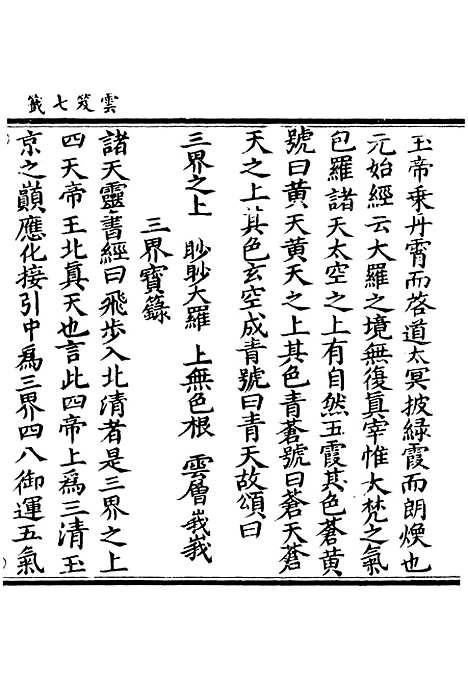 雲笈七籤
玉帝乗丹霄而啓道太冥披緑霞而朗煥也
元始經云大羅之境無復真宰惟大梵之氣
包羅諸天太空之上有自然五霞其色蒼黄
號曰黄天黄天之上其色青蒼號曰蒼天蒼
天之上其色玄空成青號曰青天故頌曰
三界之上 眇眇大羅 上無色根 雲層峩峩
三界寳籙
諸天靈書經曰飛歩入北清者是三界之上
四天帝王北真天也言此四帝上爲三清玉
京之巔應化接引中爲三界四八御運五氣